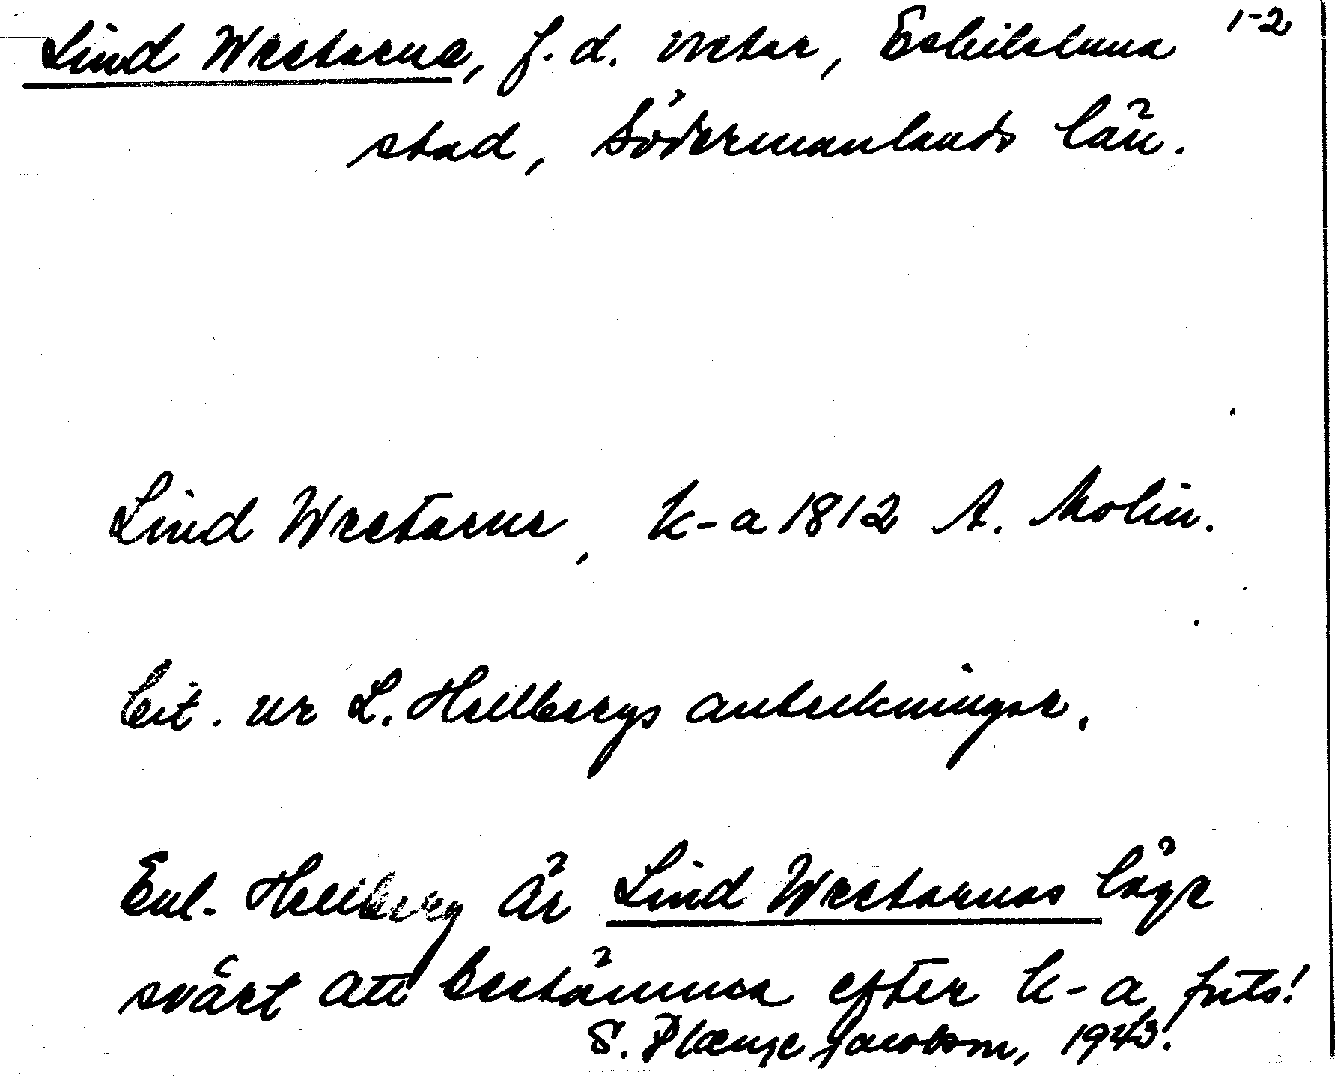 1-2
Lind Wretarna, f. d. vretar, Eskilstuna
stad, Södermanlands län.
Lind Wretarne, k-a 1812 A. Molin.
Cit. ur L. Hellbergs anteckningar.
Enl. Hellberg är Lind Wretarnas läge
svårt att bestämma efter k-a
S. Plænge Jacobson, 1943.